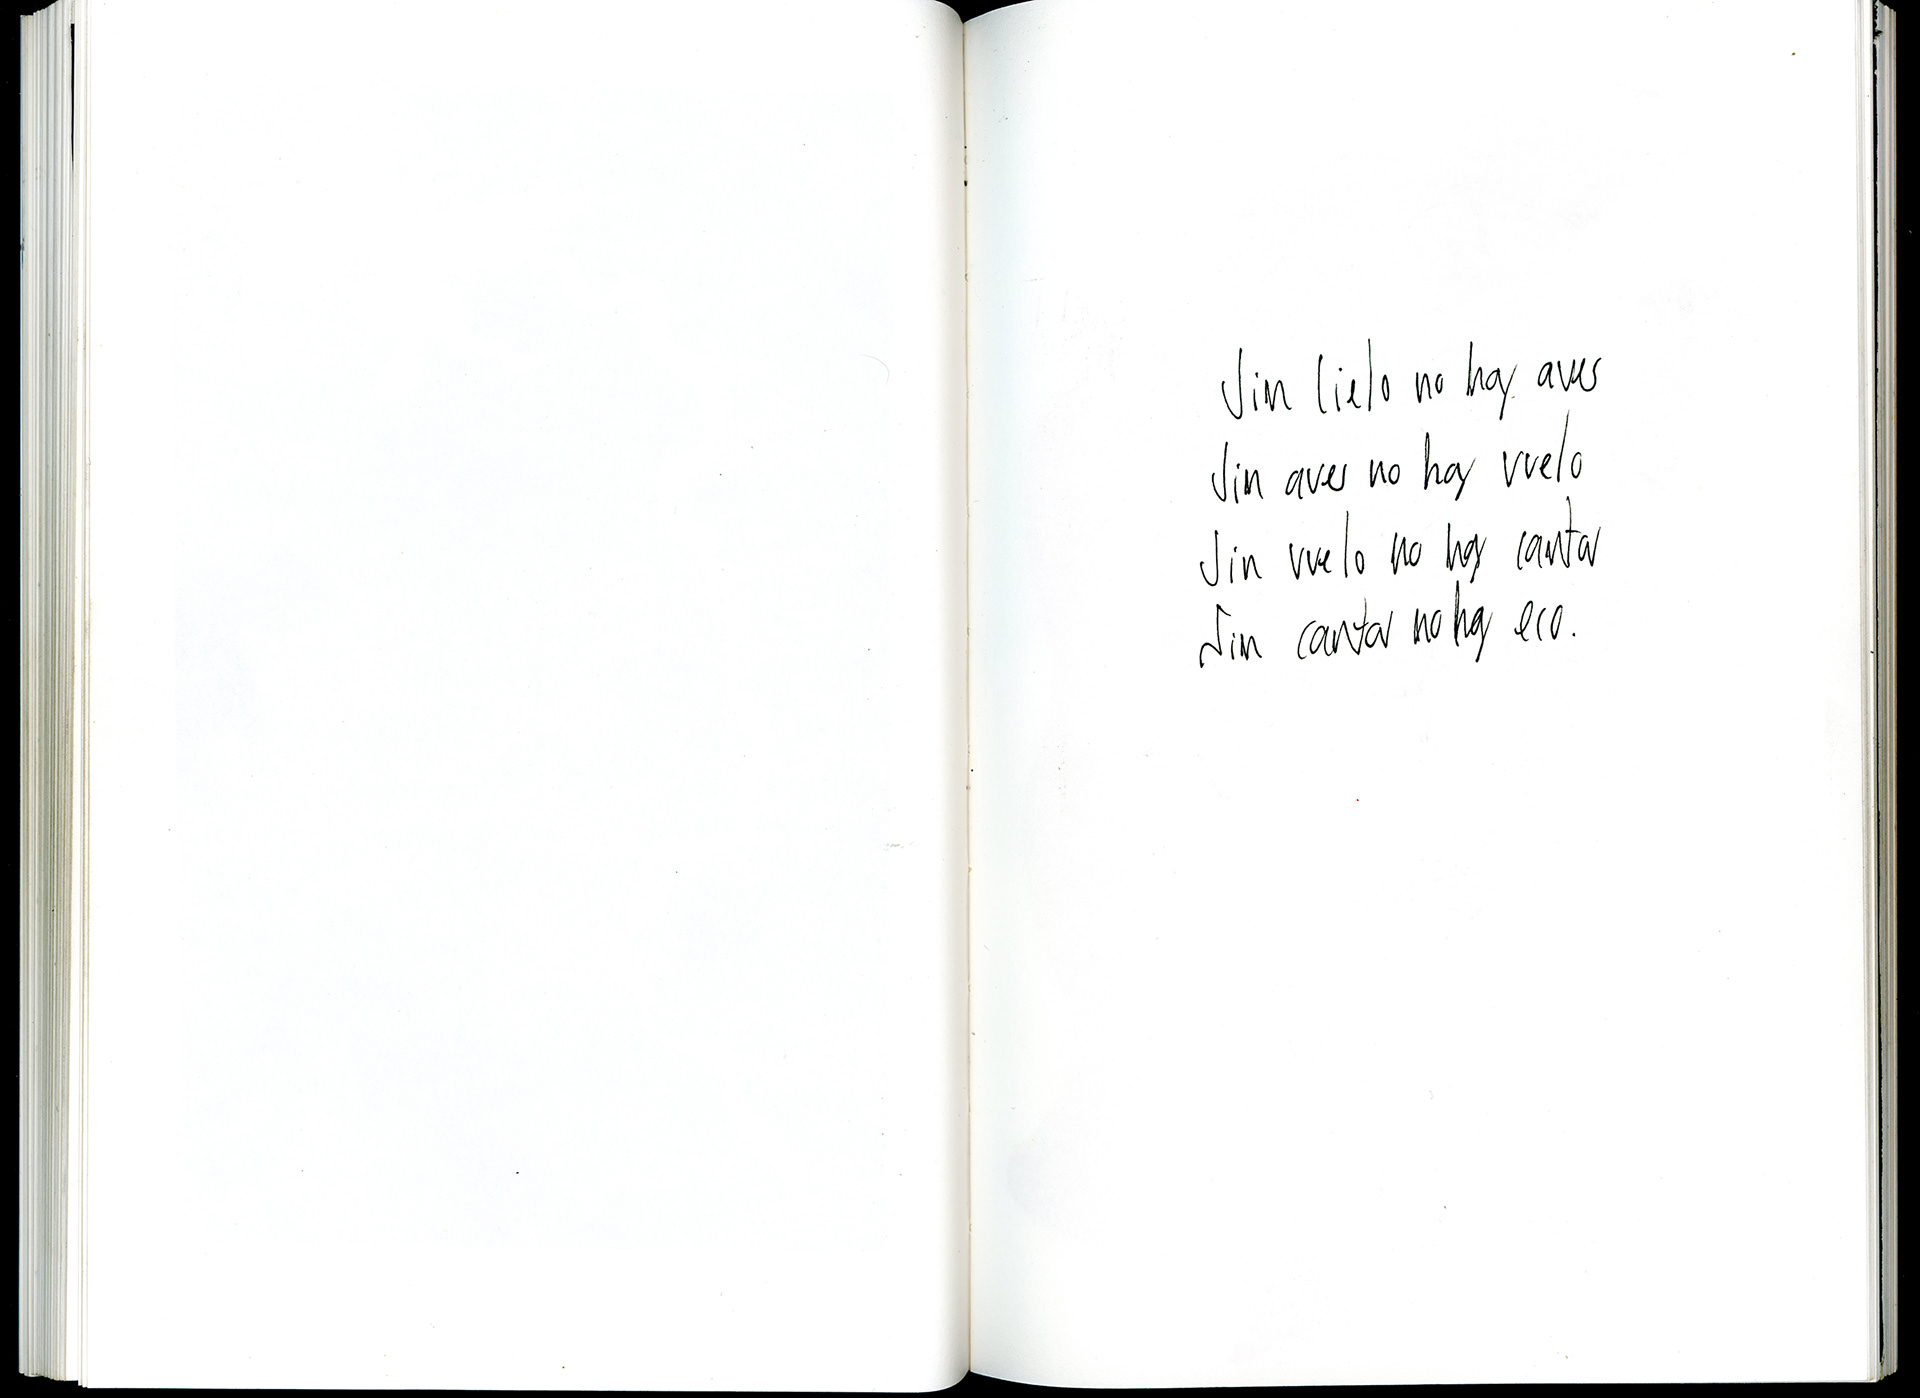 Sin cielo no hay aves
Sin aves no hay vuelo
Sin vuelo no hay cantar
Sin cantar no hay eco.